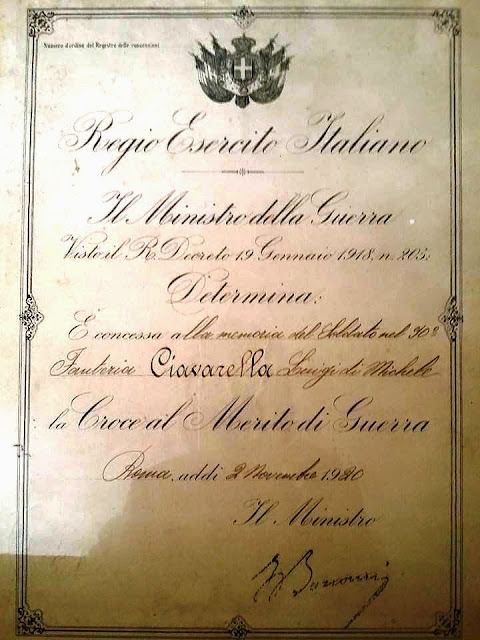 Numero d'ordine del Registro delle concessioni
Regio Esercito Italiano
Il Ministro della Guerra
Visto il R. Decreto 19 Gennaio 1918, n. 205;
Determina:
È concessa alla memoria del Soldato nel 30°
Fanteria Ciavarella Luigi di Michele
la Croce al Merito di Guerra
Roma, addì 2 Novembre 1920
Il Ministro
Bonomi